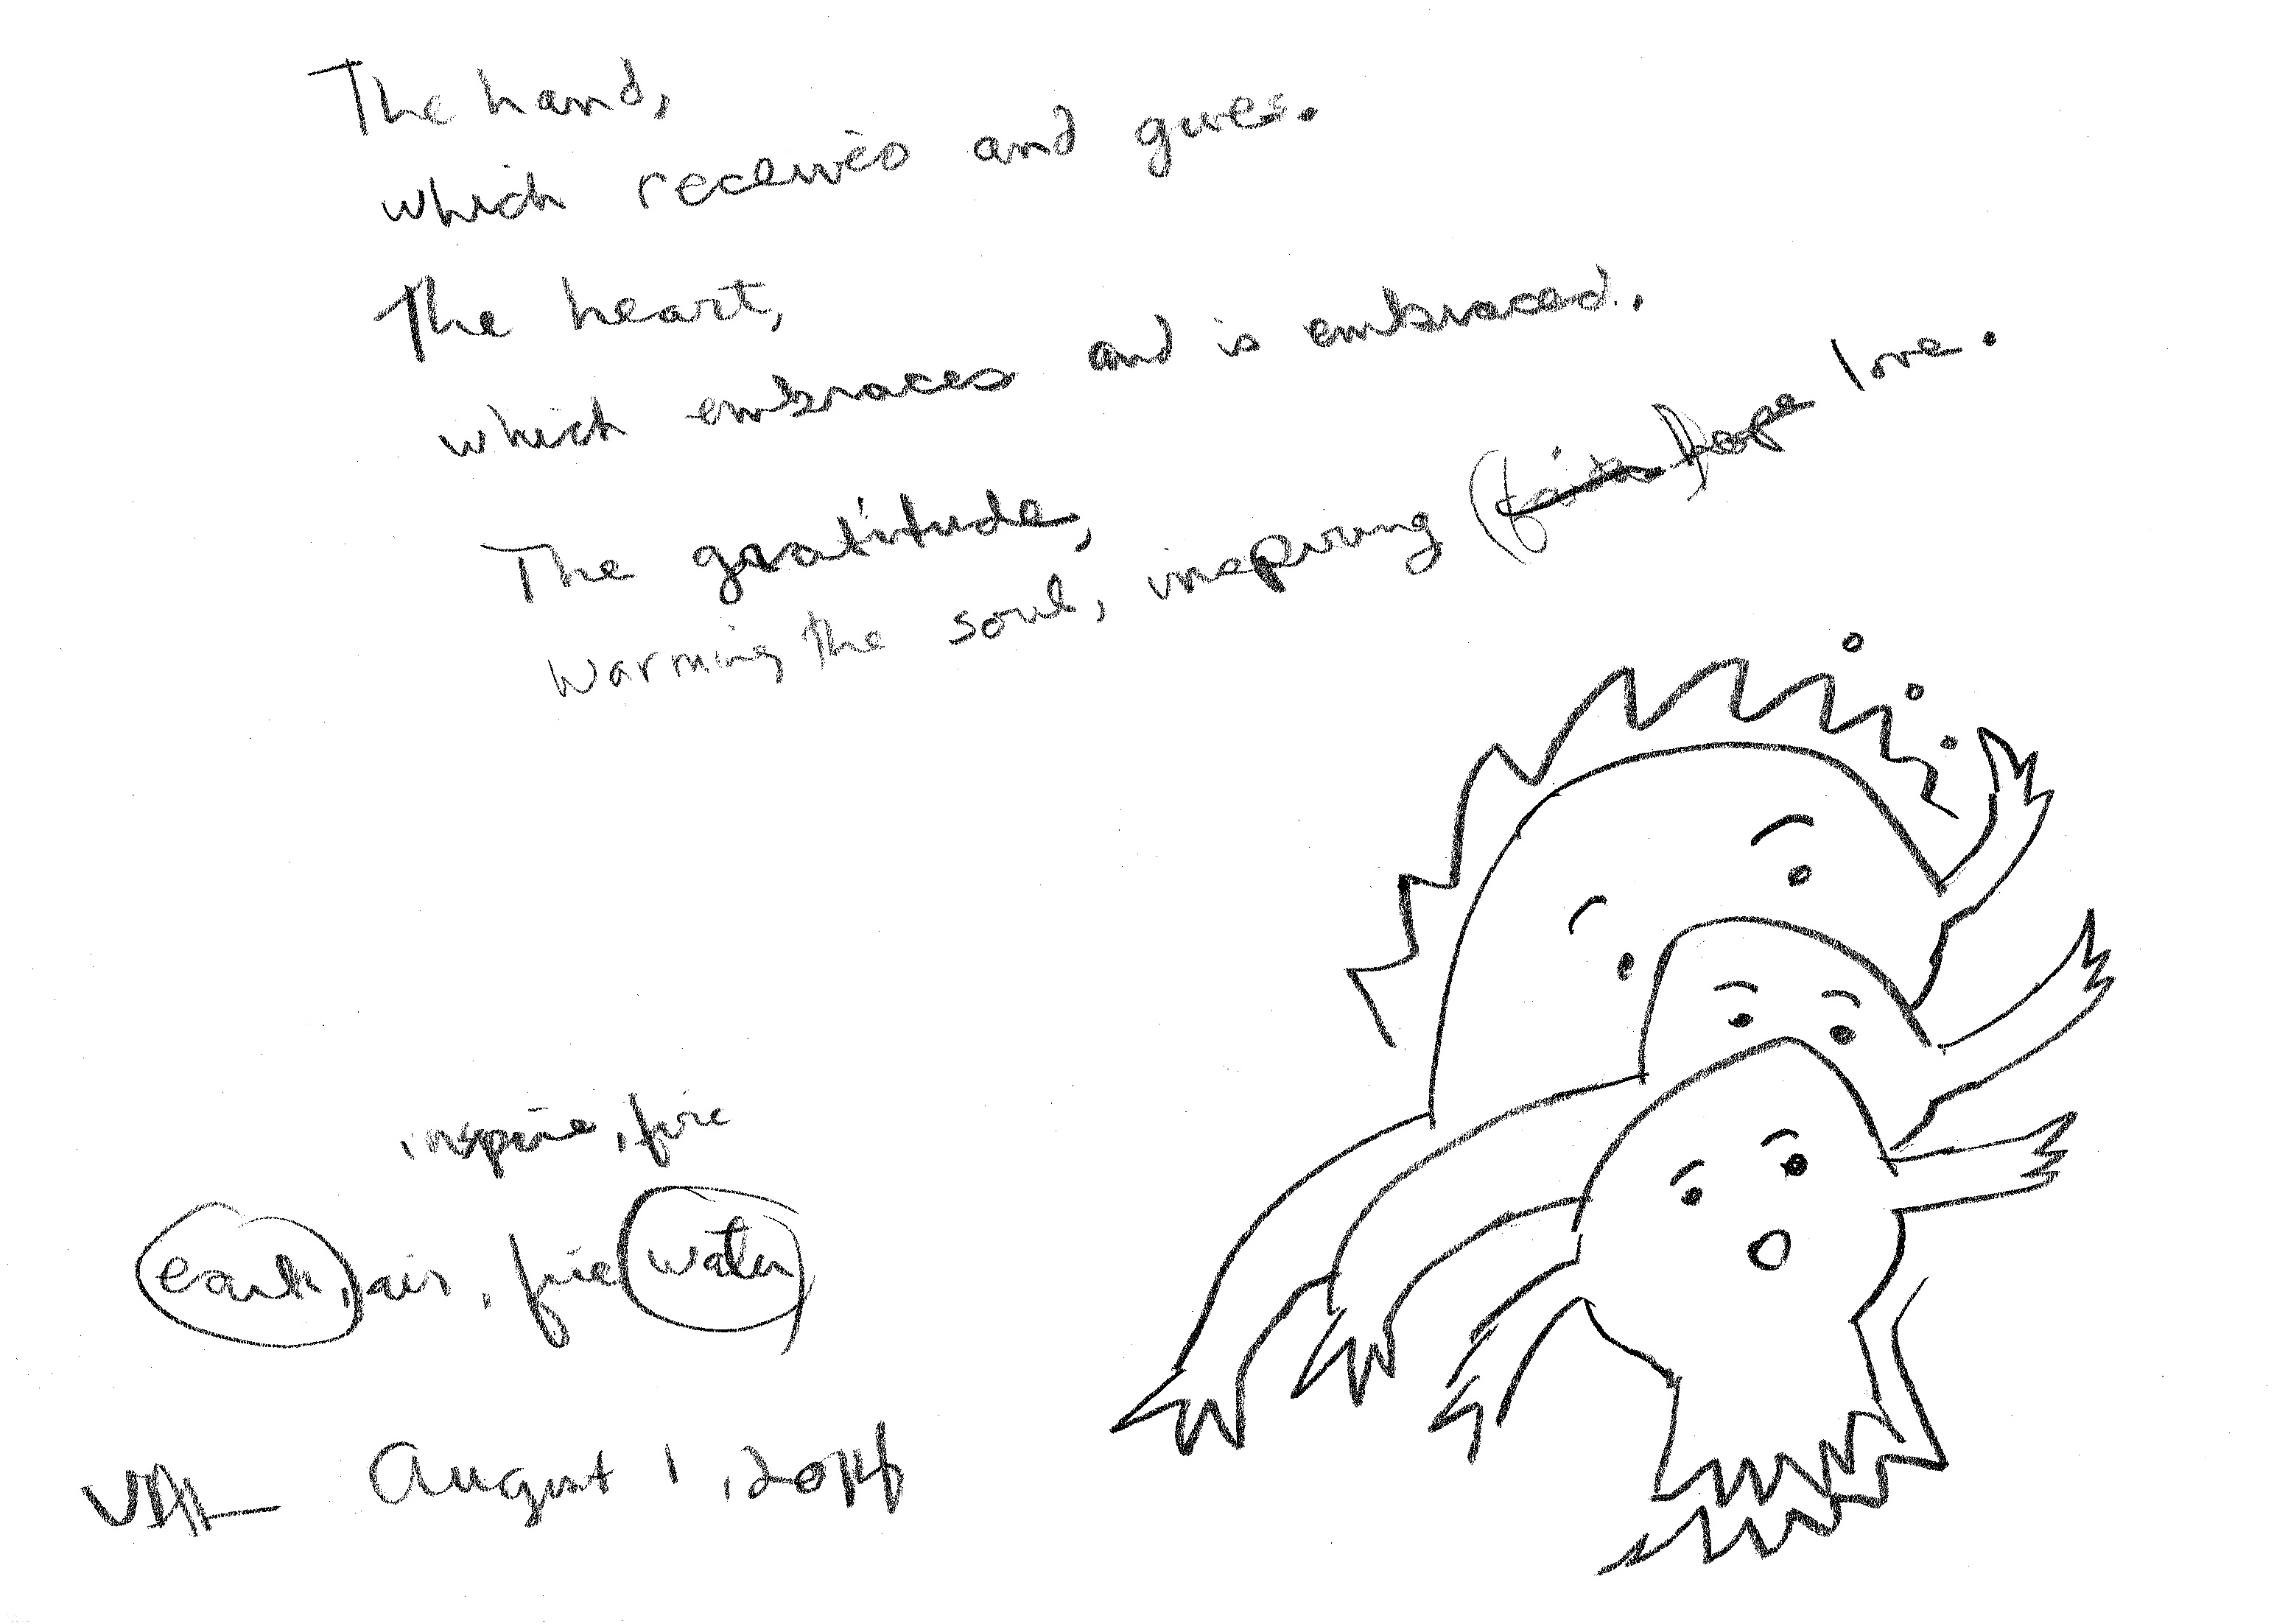 The hand,
which receives and gives.
The heart,
which embraces and is embraced.
The gratitude,
Warming the soul, inspiring (faith) hope love.
inspire, fire
earth, air, fire water
August 1, 2014